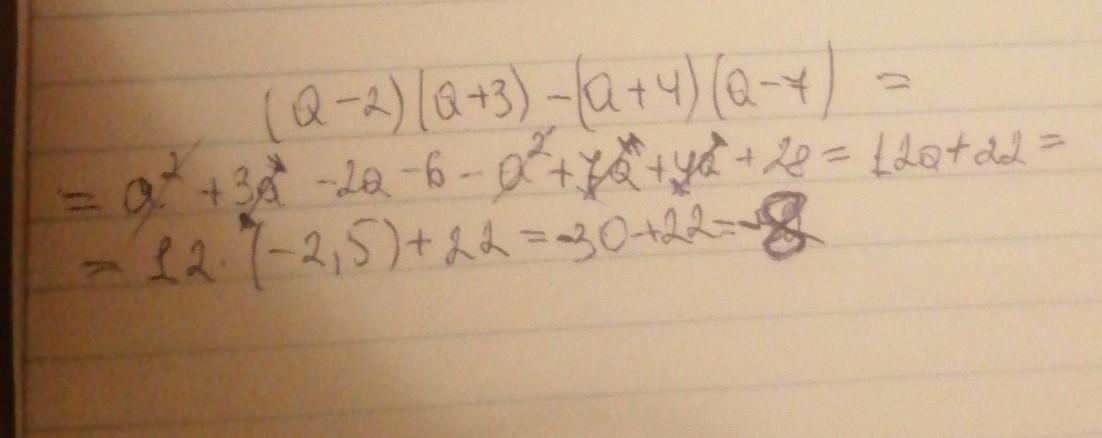 (a-2)(a+3)-(a+4)(a-7) =
= a² + 3a - 2a - 6 - a² + 7a + 4a + 28 = 12a + 22 =
= 12 · (-2,5) + 22 = -30 + 22 = -8